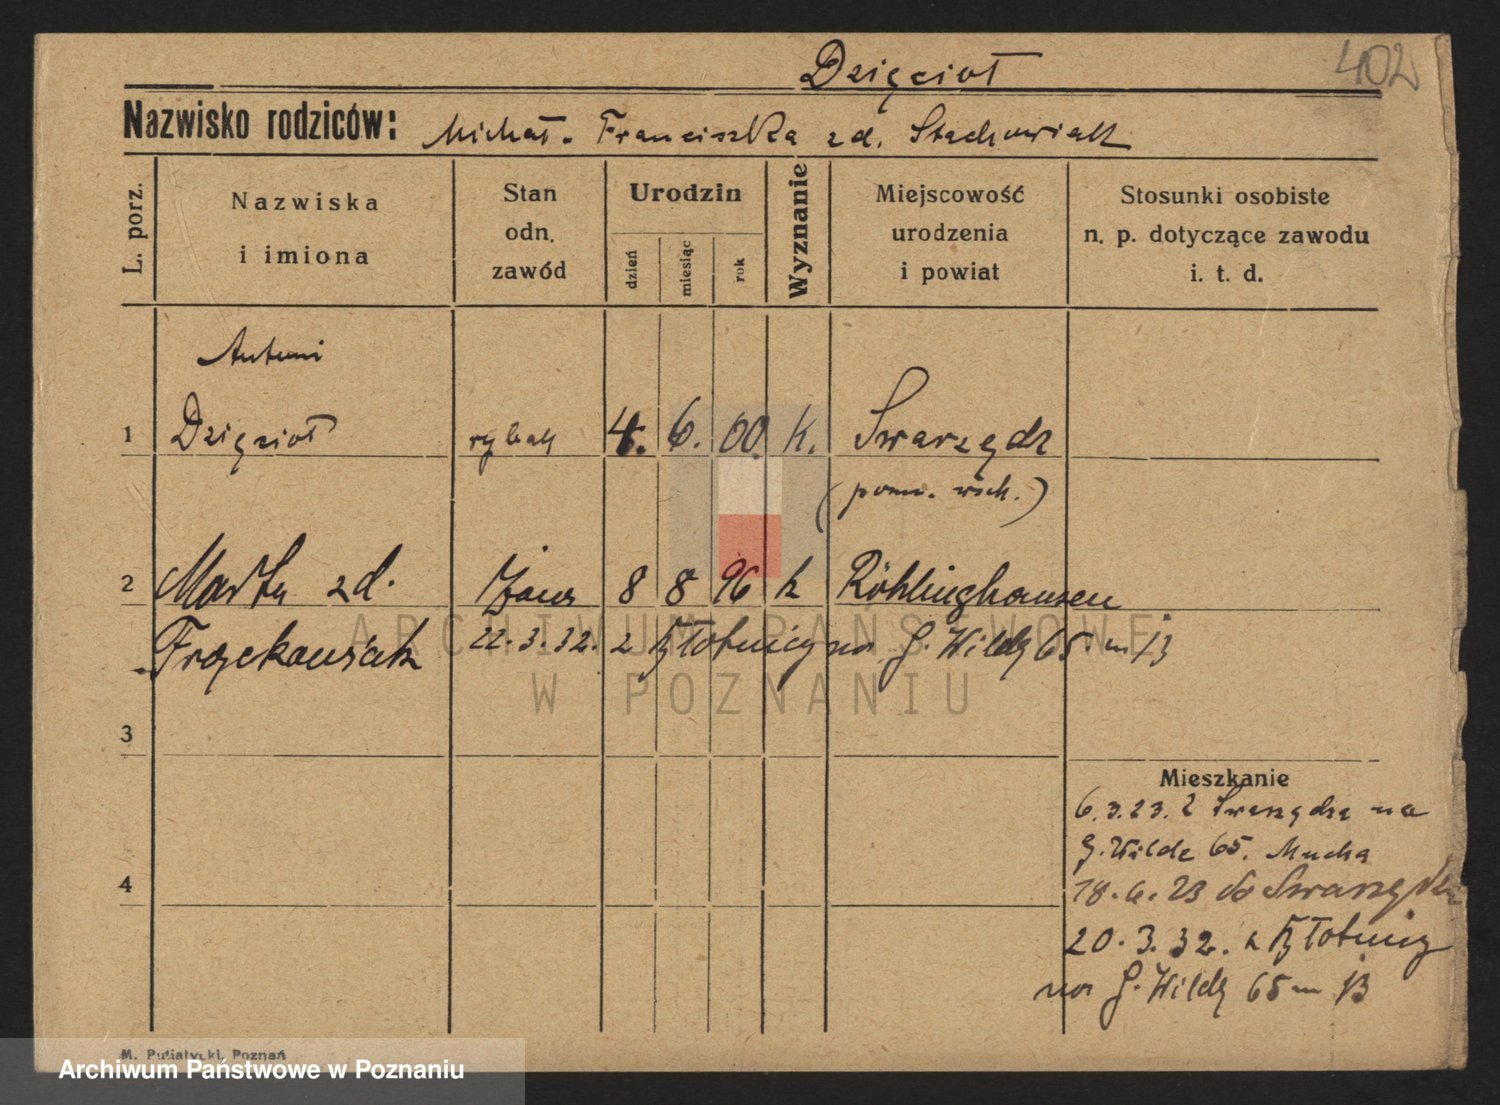 402
Dzięcioł
Nazwisko rodziców: Michał. Franciszka zd. Stachowiak
L. porz.
Nazwiska
i imiona
Stan
odn.
zawód
Urodzin
dzień
miesiąc
rok
Wyznanie
Miejscowość
urodzenia
i powiat
Stosunki osobiste
n. p. dotyczące zawodu
i. t. d.
Antoni
1 Dzięcioł rybak 4. 6. 00. k. Swarzędz
(pow. wsch.)
2 Marta zd. żona 8 8 96 k Röhlinghausen
Frąckowiak 22.3.32. z Kłotnicy na G. Wildę 65 m 13
3
4
Mieszkanie
6.3.23. z Swarzędza na
G. Wilde 65. Mucha
18.6.23 do Swarzędza
20.3.32. z Kłotnicy
na G. Wildę 65 m 13
M. Putiatycki, Poznań
ARCHIWUM PAŃSTWOWE
W POZNANIU
Archiwum Państwowe w Poznaniu